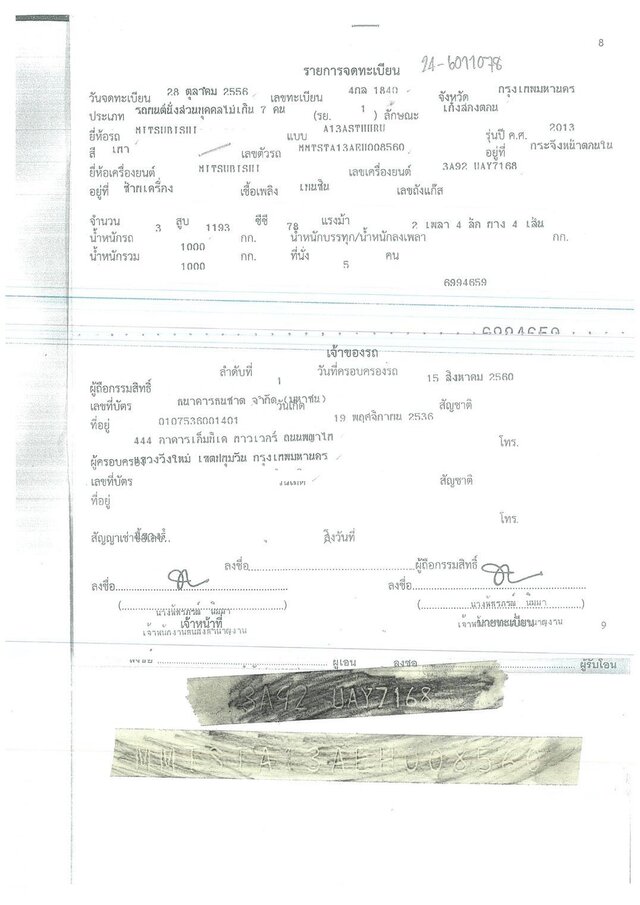 8
24-6011078
รายการจดทะเบียน
วันจดทะเบียน 28 ตุลาคม 2556 เลขทะเบียน 4กล 1840 จังหวัด กรุงเทพมหานคร
ประเภท รถยนต์นั่งส่วนบุคคลไม่เกิน 7 คน (รย. 1 ) ลักษณะ เก๋งสองตอน
ยี่ห้อรถ MITSUBISHI แบบ A13ASTHHRU รุ่นปี ค.ศ. 2013
สี เทา เลขตัวรถ MMTSTA13AEH008560 อยู่ที่ กระจังหน้าตอนใน
ยี่ห้อเครื่องยนต์ MITSUBISHI เลขเครื่องยนต์ 3A92 UAY7168
อยู่ที่ ซ้ายเครื่อง เชื้อเพลิง เบนซิน เลขถังแก๊ส
จำนวน 3 สูบ 1193 ซีซี 78 แรงม้า 2 เพลา 4 ล้อ ยาง 4 เส้น
น้ำหนักรถ 1000 กก. น้ำหนักบรรทุก/น้ำหนักลงเพลา กก.
น้ำหนักรวม 1000 กก. ที่นั่ง 5 คน
6994659
6994659
เจ้าของรถ
ลำดับที่ 1 วันที่ครอบครองรถ 15 สิงหาคม 2560
ผู้ถือกรรมสิทธิ์ ธนาคารธนชาต จำกัด (มหาชน)
เลขที่บัตร 0107536001401 วันเกิด 19 พฤศจิกายน 2536 สัญชาติ
ที่อยู่ 444 อาคารเอ็มบีเค ทาวเวอร์ ถนนพญาไท
แขวงวังใหม่ เขตปทุมวัน กรุงเทพมหานคร โทร.
ผู้ครอบครอง
เลขที่บัตร วันเกิด สัญชาติ
ที่อยู่
โทร.
สัญญาเช่าซื้อเลข.. ลงวันที่
ลงชื่อ ผู้ถือกรรมสิทธิ์
ลงชื่อ ลงชื่อ
( ) ( )
เจ้าหน้าที่ นายทะเบียน
9
ลงชื่อ ผู้โอน ลงชื่อ ผู้รับโอน
3A92 UAY7168
MMTSTA13AEH00856